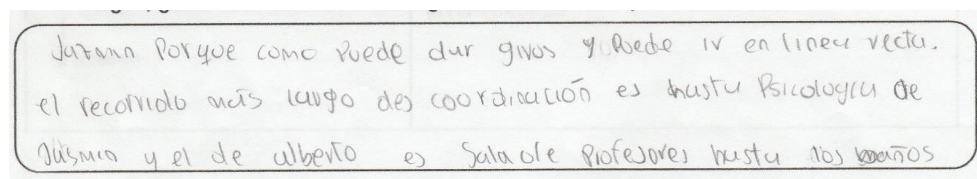 Porque como Puede dar giros y Puede ir en linea recta.
el recorrido más largo des coordinación es hasta Psicologia de
Jasmin y el de alberto es Sala de Profesores hasta los baños